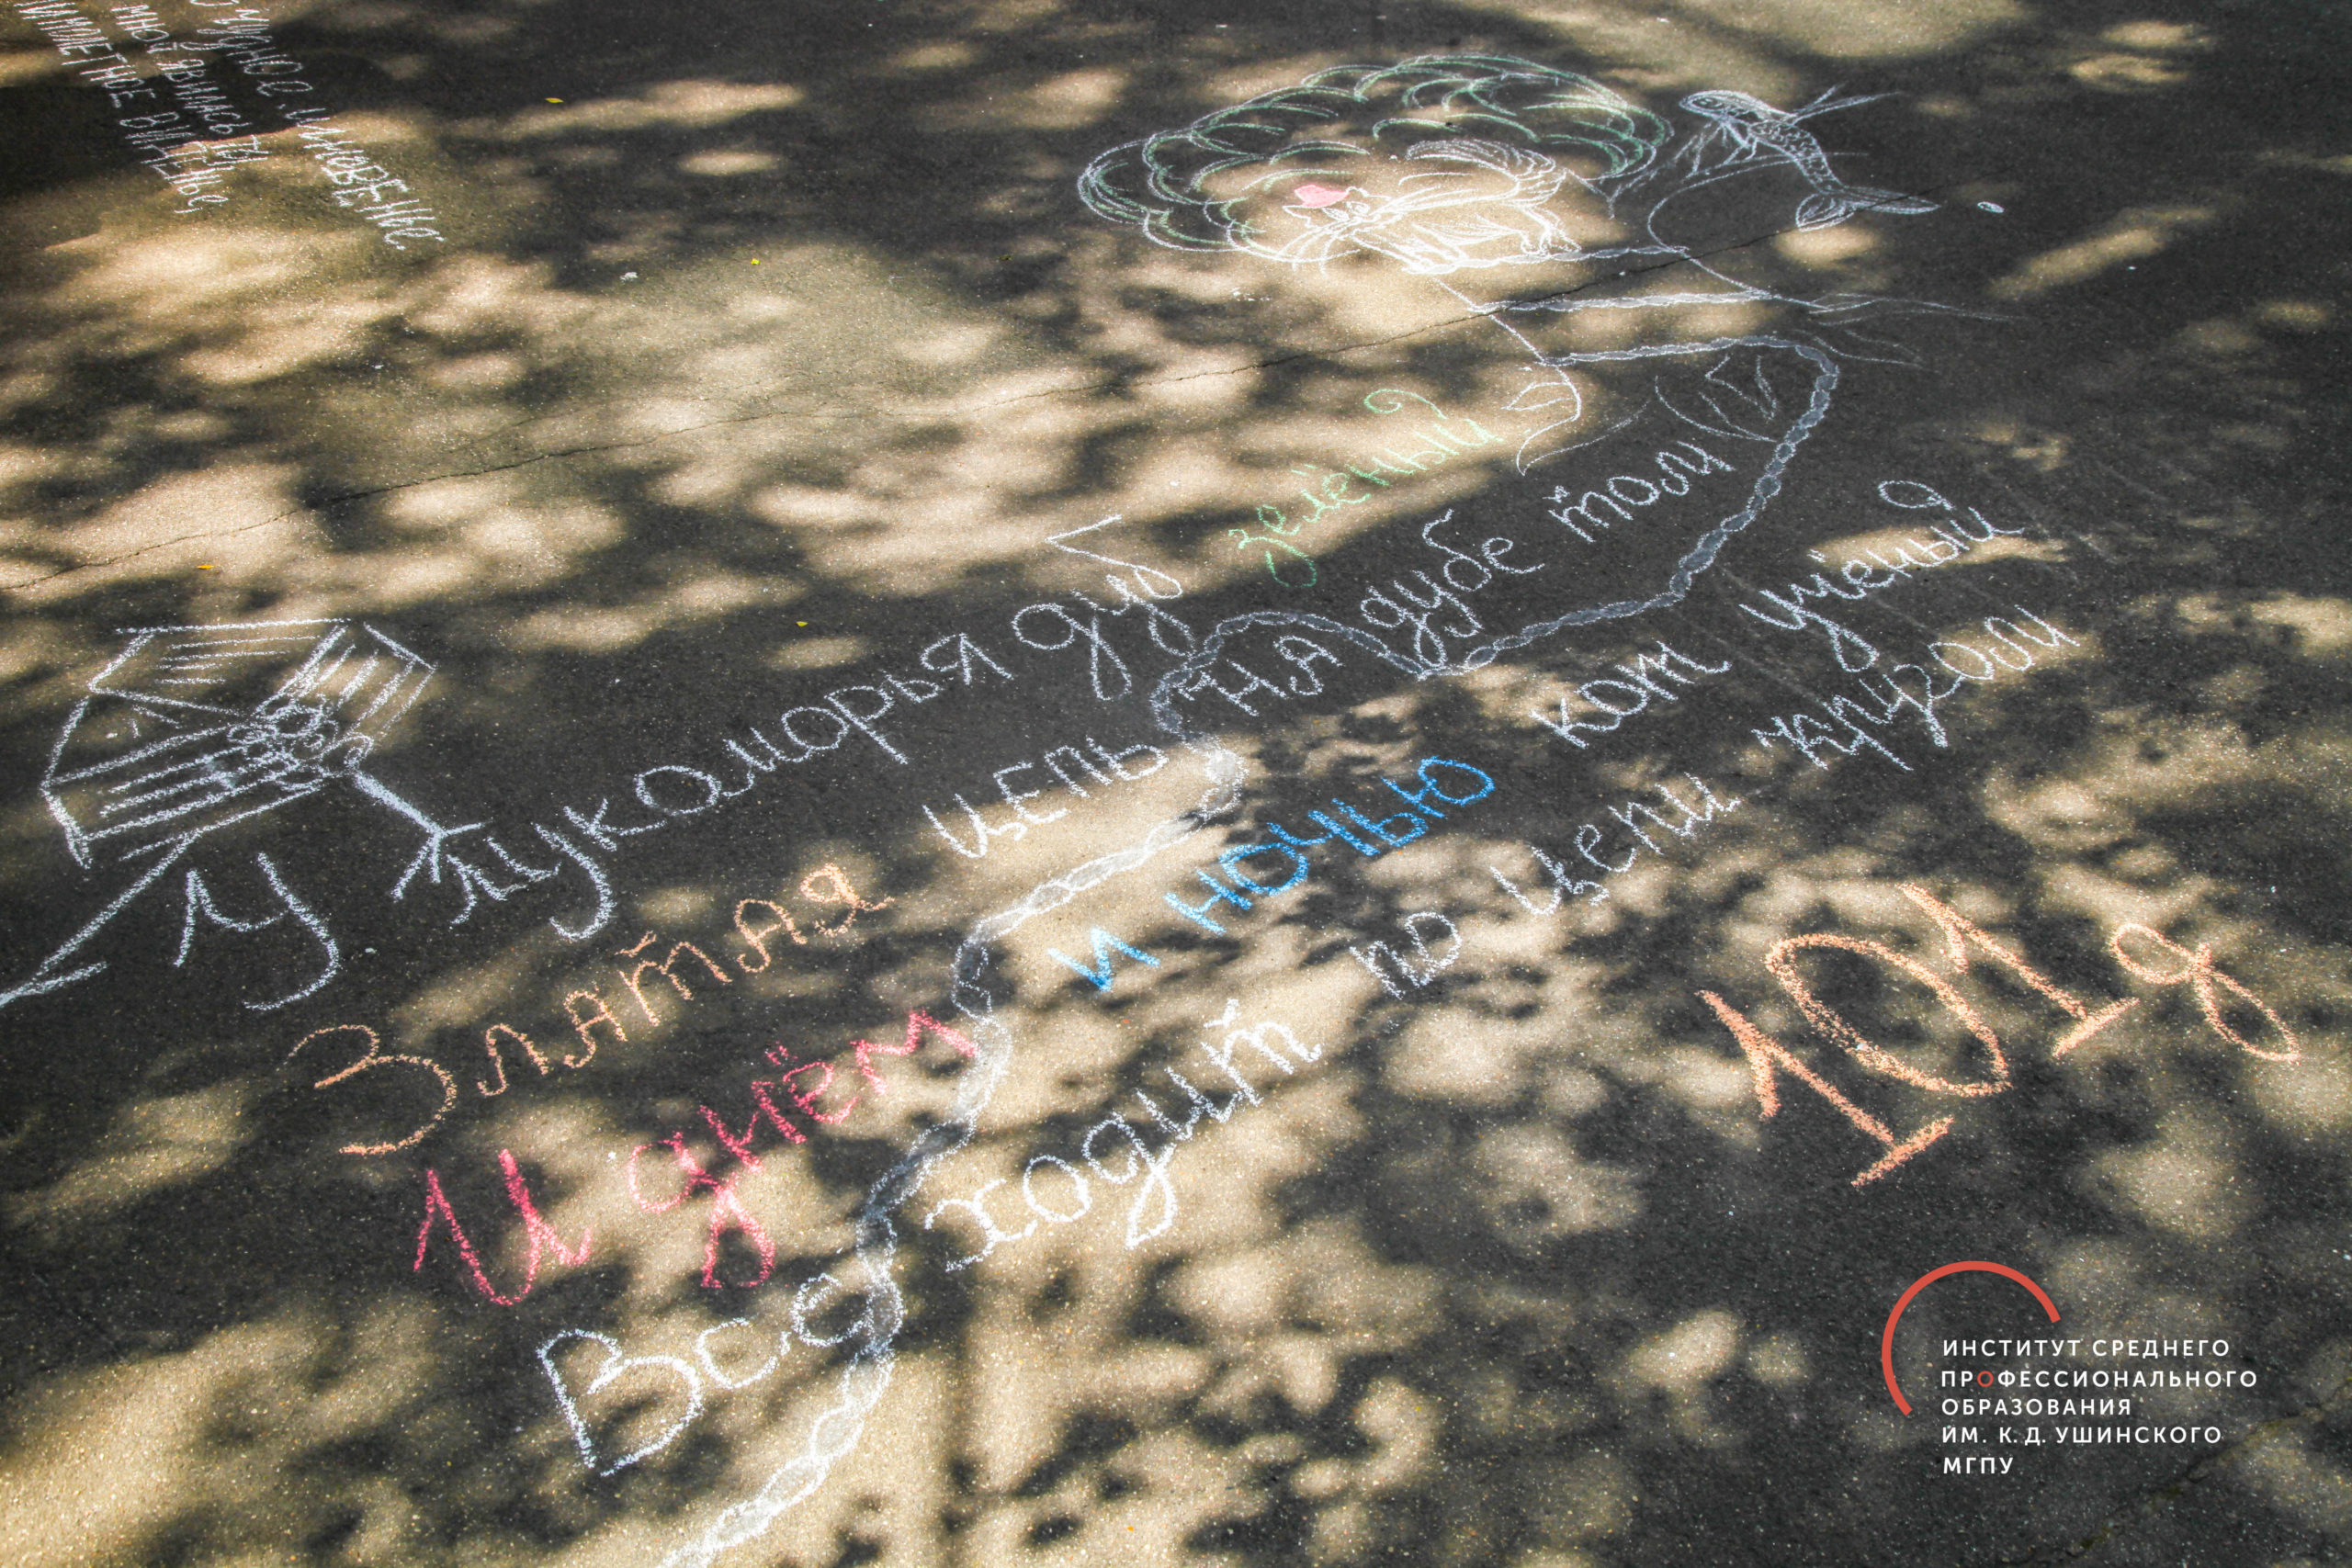 чудное мгновенье
мной явилась ты
мимолетное виденье,
У лукоморья дуб зелёный
Златая цепь на дубе толи
И днём и ночью кот учёный
Всё ходит по цепи кругом
101д
ИНСТИТУТ СРЕДНЕГО
ПРОФЕССИОНАЛЬНОГО
ОБРАЗОВАНИЯ
ИМ. К. Д. УШИНСКОГО
МГПУ